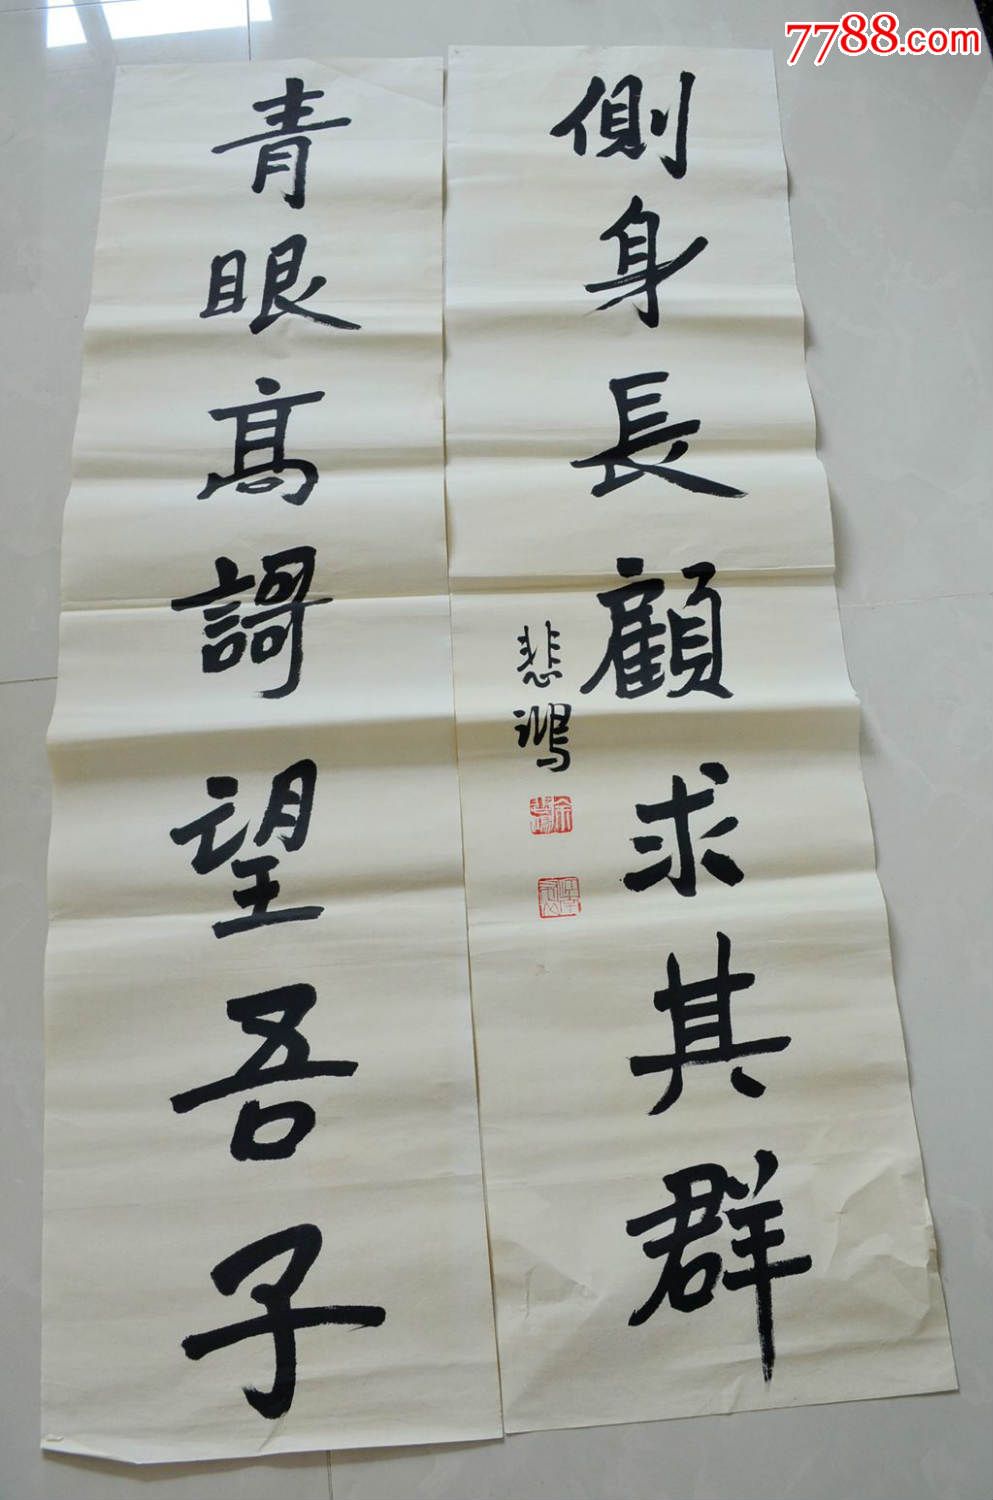 7788.com
側身長顧求其群
悲鴻
青眼高謌望吾子